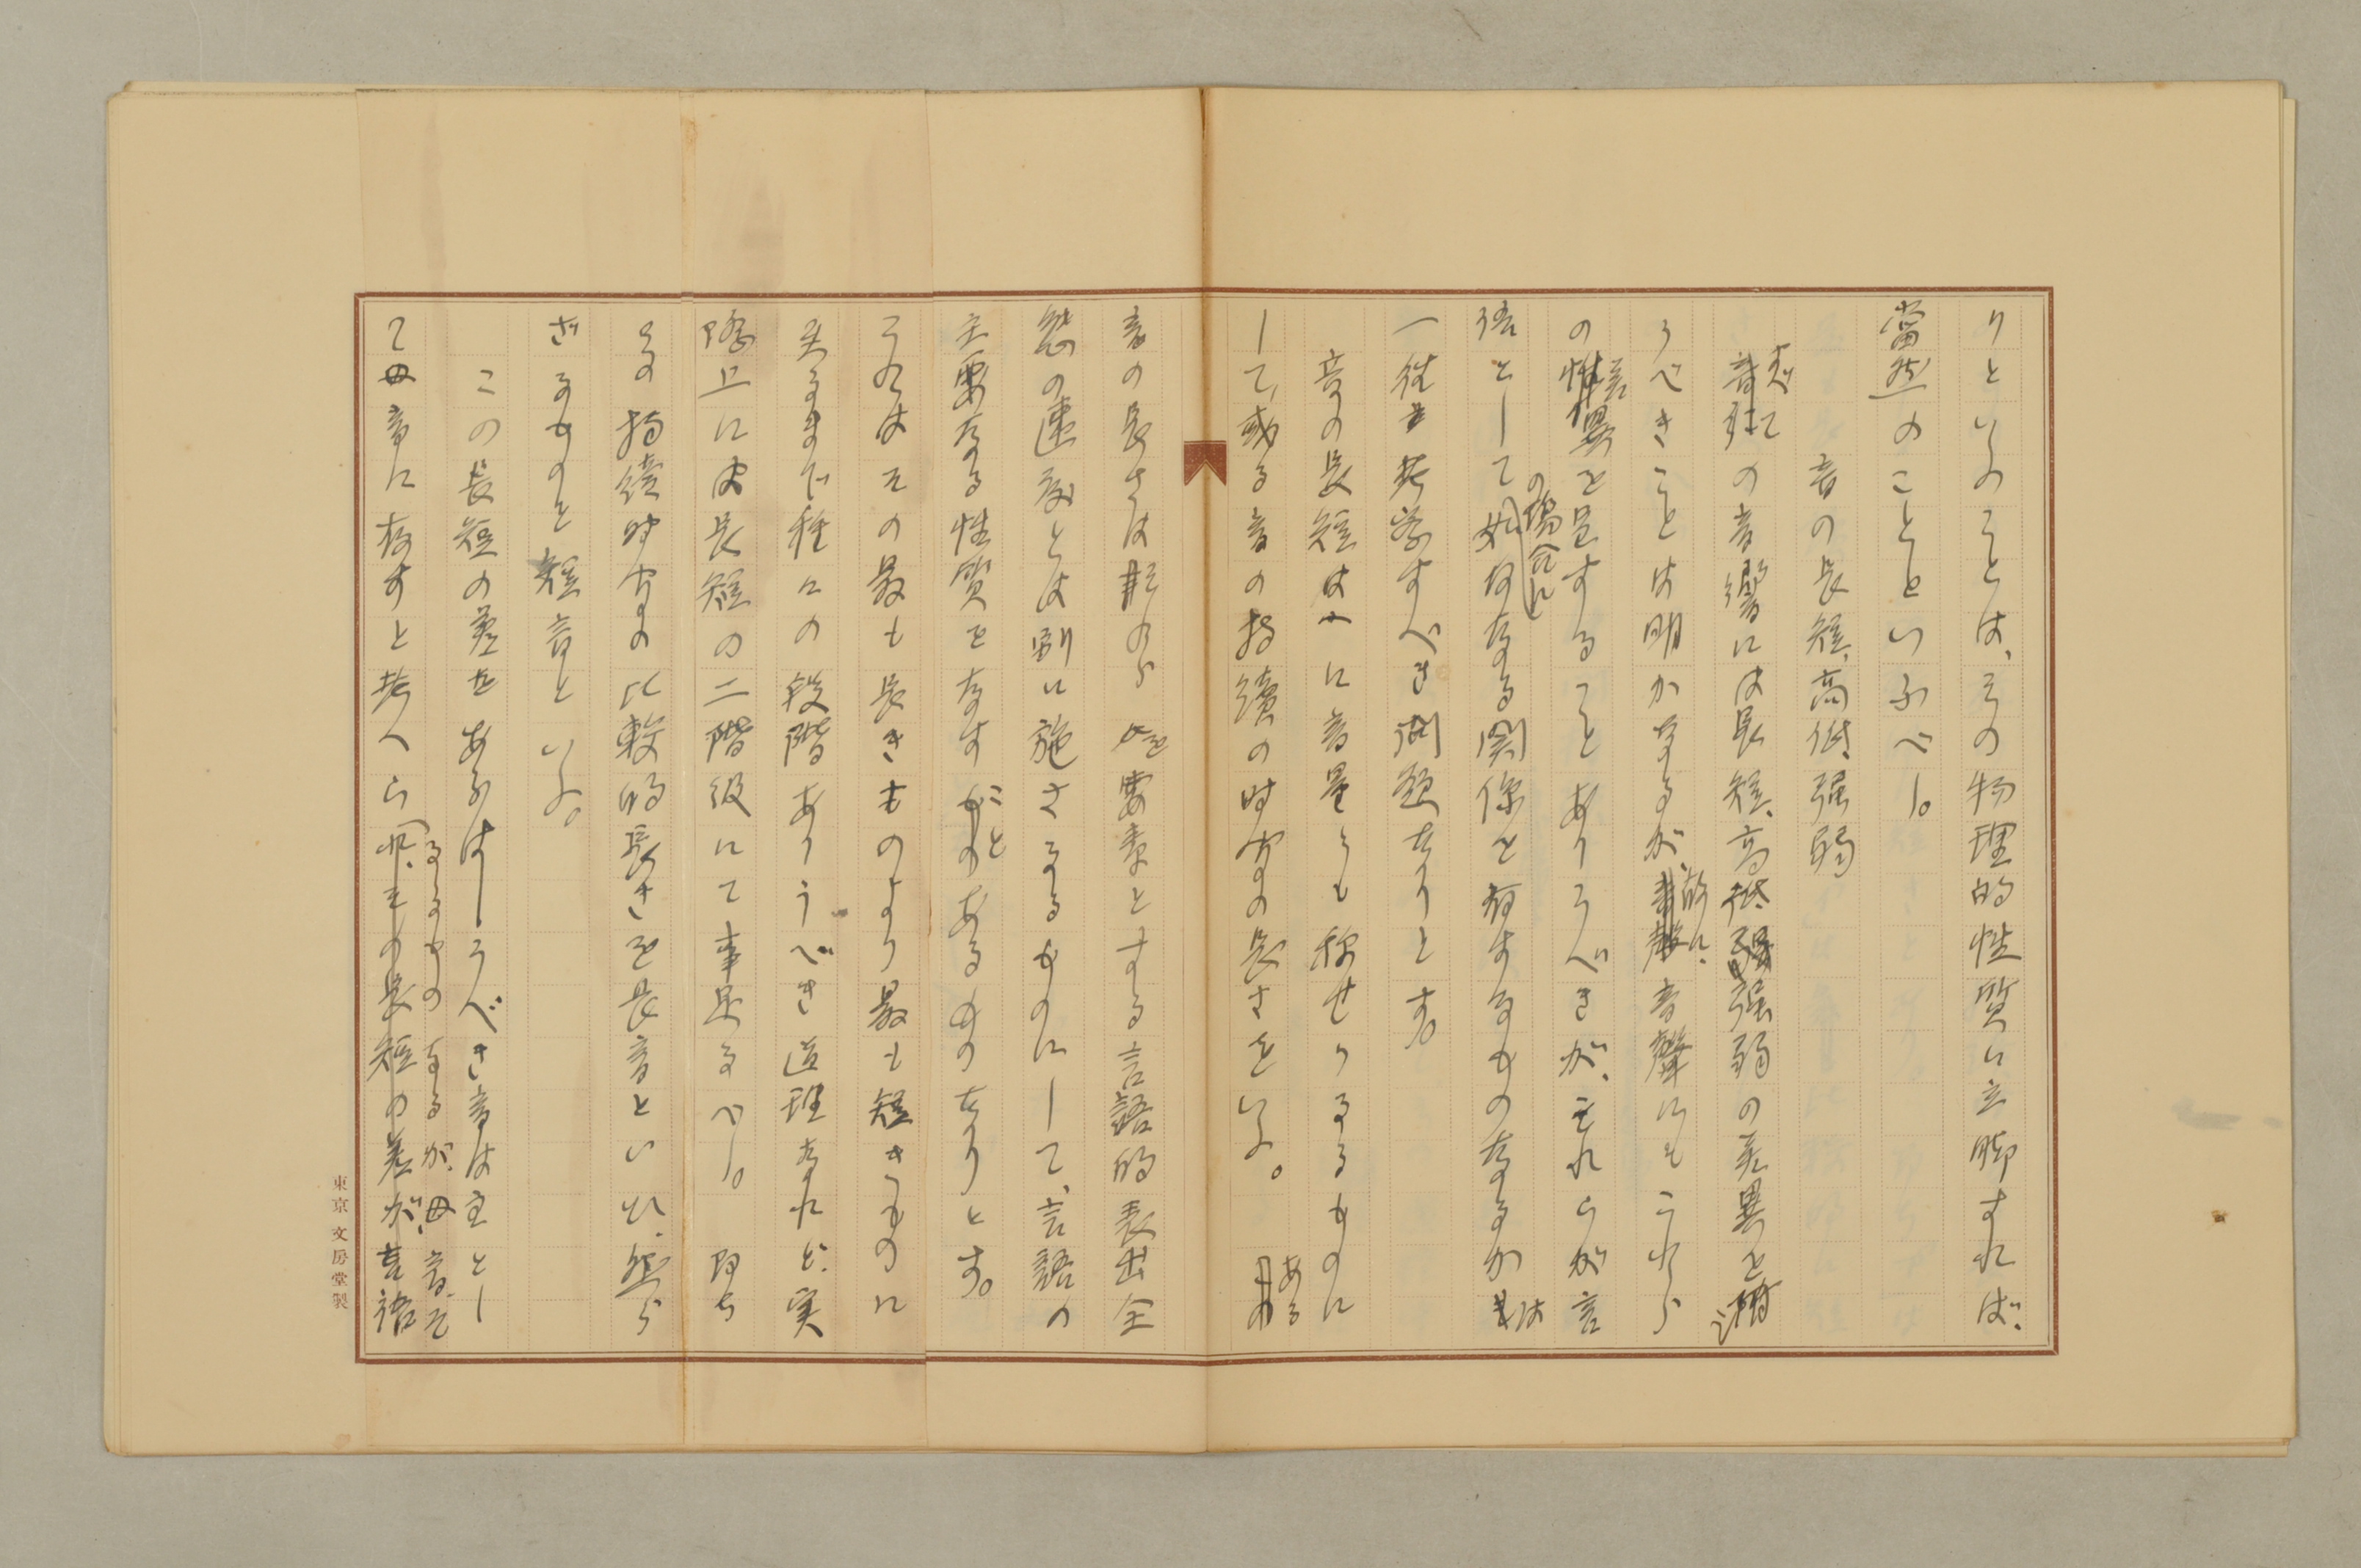 りといふことは、その物理的性質に立脚すれば、
當然のことといふべし。
音の長短、高低、強弱
すべての音響には長短、高低、強弱の差異を
うべきことは明かなるが、故に、音聲にもこれら
の差異を呈することありうべきが、それらが言
語としての場合に如何なる関係を有するものなるかは
一往考察すべき問題なりとす。
音の長短は一に音量とも称せらるるものに
して、或る音の持續の時間の長さをいふ。ある
音の長さは形のら 要素とする言語的表出全
態の速度とは別に施さるるものにして、言語の
主要なる性質をなすことあるものなりとす。
これはその最も長きものより最も短きものに
至るまで種々の段階ありうべき道理なれど、実
際上には長短の二階級にて事足るべし。即ち
その持續時間の比較的長きを長音といひ、然ら
ざるものを短音といふ。
この長短の差をあらはしうべき音は主とし
て母音に存すと考へらるるものなるが、母音、そ
の長短の差が、言語
東京 文房堂製